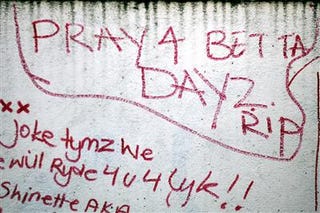 PRAY 4 BETTA
DAYZ
RIP
xx
Joke tymz We
will Ryde 4 u 4 lyk !!
Shinette AKA